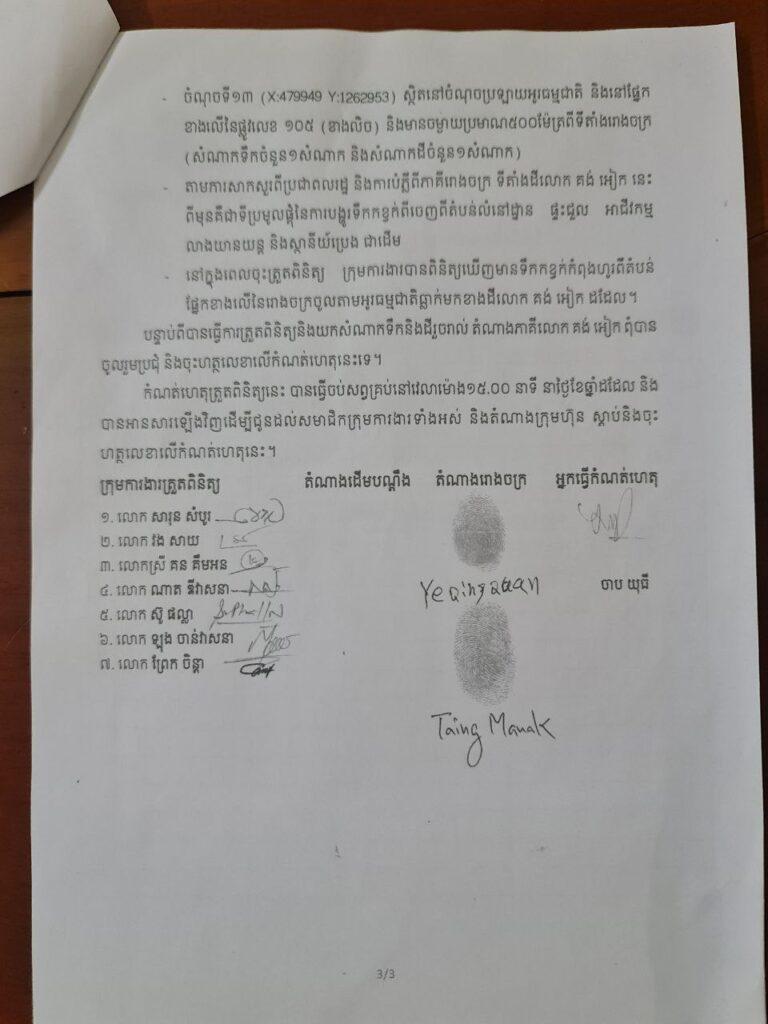 - ចំណុចទី១៣ (X:479949 Y:1262953) ស្ថិតនៅចំណុចប្រឡាយអូរធម្មជាតិ និងនៅផ្នែក
ខាងលើនៃផ្លូវលេខ ១០៥ (ខាងលិច) និងមានចម្ងាយប្រមាណ៥០០ម៉ែត្រពីទីតាំងរោងចក្រ
(សំណាកទឹកចំនួន១សំណាក និងសំណាកដីចំនួន១សំណាក)
- តាមការសាកសួរពីប្រជាពលរដ្ឋ និងការបំភ្លឺពីភាគីរោងចក្រ ទីតាំងដីលោក គង់ អៀក នេះ
ពីមុនគឺជាទីប្រមូលផ្តុំនៃការបង្ហូរទឹកកខ្វក់ពីចេញពីតំបន់លំនៅដ្ឋាន ផ្ទះជួល អាជីវកម្ម
លាងយានយន្ត និងស្ថានីយ៍ប្រេង ជាដើម
- នៅក្នុងពេលចុះត្រួតពិនិត្យ ក្រុមការងារបានពិនិត្យឃើញមានទឹកកខ្វក់កំពុងហូរពីតំបន់
ផ្នែកខាងលើនៃរោងចក្រចូលតាមអូរធម្មជាតិធ្លាក់មកខាងដីលោក គង់ អៀក ដដែល។
បន្ទាប់ពីបានធ្វើការត្រួតពិនិត្យនិងយកសំណាកទឹកនិងដីរួចរាល់ តំណាងភាគីលោក គង់ អៀក ពុំបាន
ចូលរួមប្រជុំ និងចុះហត្ថលេខាលើកំណត់ហេតុនេះទេ។
កំណត់ហេតុត្រួតពិនិត្យនេះ បានធ្វើចប់សព្វគ្រប់នៅវេលាម៉ោង១៥.00 នាទី នាថ្ងៃខែឆ្នាំដដែល និង
បានអានសារឡើងវិញដើម្បីជូនដល់សមាជិកក្រុមការងារទាំងអស់ និងតំណាងក្រុមហ៊ុន ស្តាប់និងចុះ
ហត្ថលេខាលើកំណត់ហេតុនេះ។
ក្រុមការងារត្រួតពិនិត្យ តំណាងដើមបណ្តឹង តំណាងរោងចក្រ អ្នកធ្វើកំណត់ហេតុ
១. លោក សារុន សំបូរ
២. លោក វង សាយ
៣. លោកស្រី គន គឹមអន
៤. លោក ណាត ឌីវាសនា
ចាប យុធី
៥. លោក ស៊ូ ផល្លា
៦. លោក ឡុង ចាន់វាសនា
៧. លោក ព្រែក ចិន្តា
Taing Manak
3/3